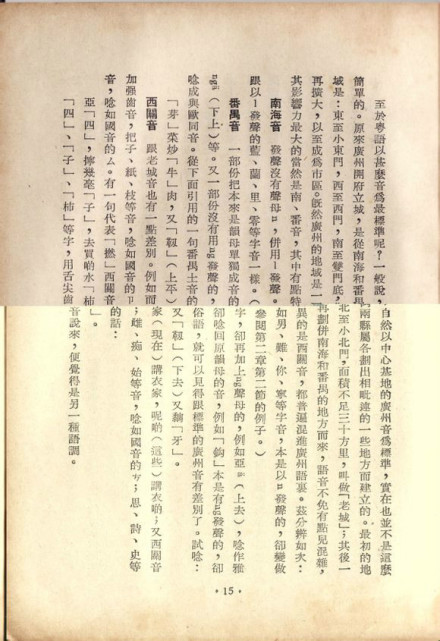 至於粵語以甚麼音為最標準呢？一般說，自然以中心基地的廣州音為標準，實在也並不是這麼
簡單的。原來廣州開府立城，是從南海和番禺兩縣屬各劃出相毗連的一些地方而建立的。最初的地
域是：東至小東門，西至西門，南至雙門底，北至小北門，面積不足三十方里，叫做「老城」；其後一
再擴大，以至成為市區。旣然廣州的地域是一再劃併南海和番禺的地方而來，語音不免有點兒混雜，
其影響力最大的當然是南、番音，其中有點特異的是西關音，都普遍混進廣州語裏。茲分辨如次：
南海音　發聲沒有聲母n，併用l發聲。（如男、難、你、寧等字音，本是以n發聲的，卻變做
跟以l發聲的藍、蘭、里、零等字音一樣。（參閱第二章第二節的例子。）
番禺音　一部份把本來是韻母單獨成音的字，卻再加上ng聲母的，例如亞（上去），唸作雅
（下上）等。又一部份沒有用ng發聲的，卻唸回原韻母的音，例如「鈎」本是有ng發聲的，卻
唸成與歐同音。從下面引用的一句番禺土音的俗語，就可以見得跟標準的廣州音有差別了。試唸：
「芽」菜炒「牛」肉，又「韌」（上平）又「韌」（下去）又黐「牙」。
西關音　跟老城音也有一點差別。例如而家（現在）講衣家，呢啲（這些）講衣啲；又西關音
加強齒音，把子、紙、枝等音，唸如國音的ㄗ；雌、痴、始等音，唸如國音的ㄘ；思、詩、史等
音，唸如國音的ㄙ。有一句代表「撚」西關音的話：
亞「四」，擰幾毫「子」，去買啲水「柿」。
「四」、「子」、「柿」等字，用舌尖齒音說來，便覺得是另一種語調。
·15·